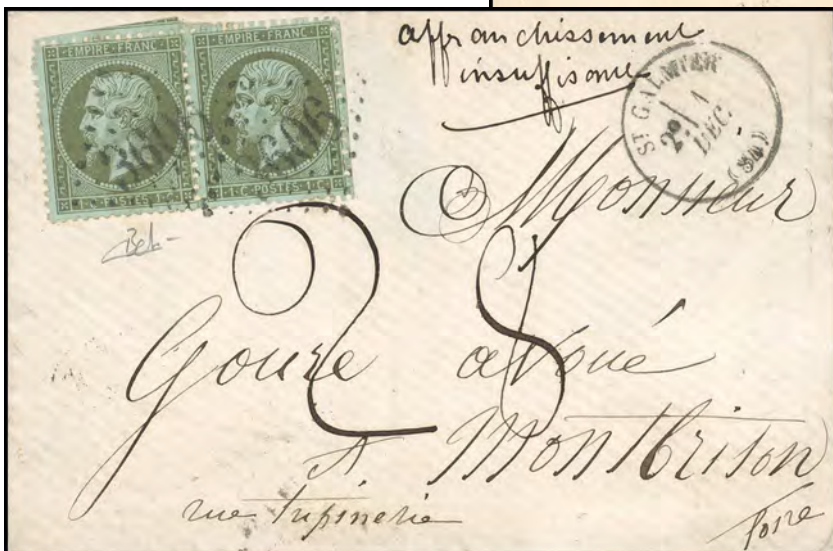 EMPIRE FRANC EMPIRE FRANC
1·C·POSTES·1·C 1·C·POSTES·1·C
affranchissement
insuffisant
ST GALMIER
2e 1
DEC.
(84)
Monsieur
28
Goure avoué
A Montbrison
rue tupinerie
Loire